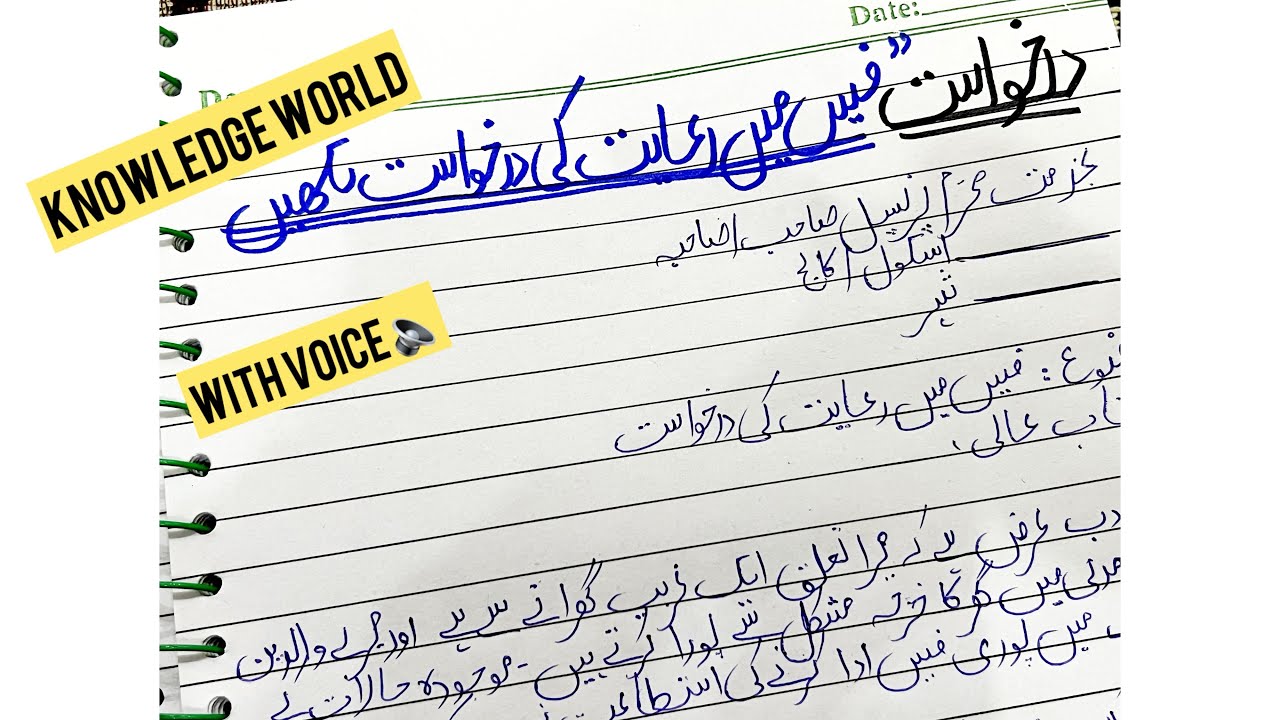 Date:
درخواست "فیس میں رعایت کی درخواست لکھیں
KNOWLEDGE WORLD
بخدمت محترم پرنسپل صاحب/صاحبہ
اسکول/کالج
شہر
WITH VOICE
ضوع: فیس میں رعایت کی درخواست
ناب عالی،
دب عرض ہے کہ میرا تعلق ایک غریب گھرانے سے ہے اور میرے والدین
مدنی میں گھر کا خرچہ مشکل سے پورا کرتے ہیں - موجودہ حالات کے
میں پوری فیس ادا کرنے کی استطاعت